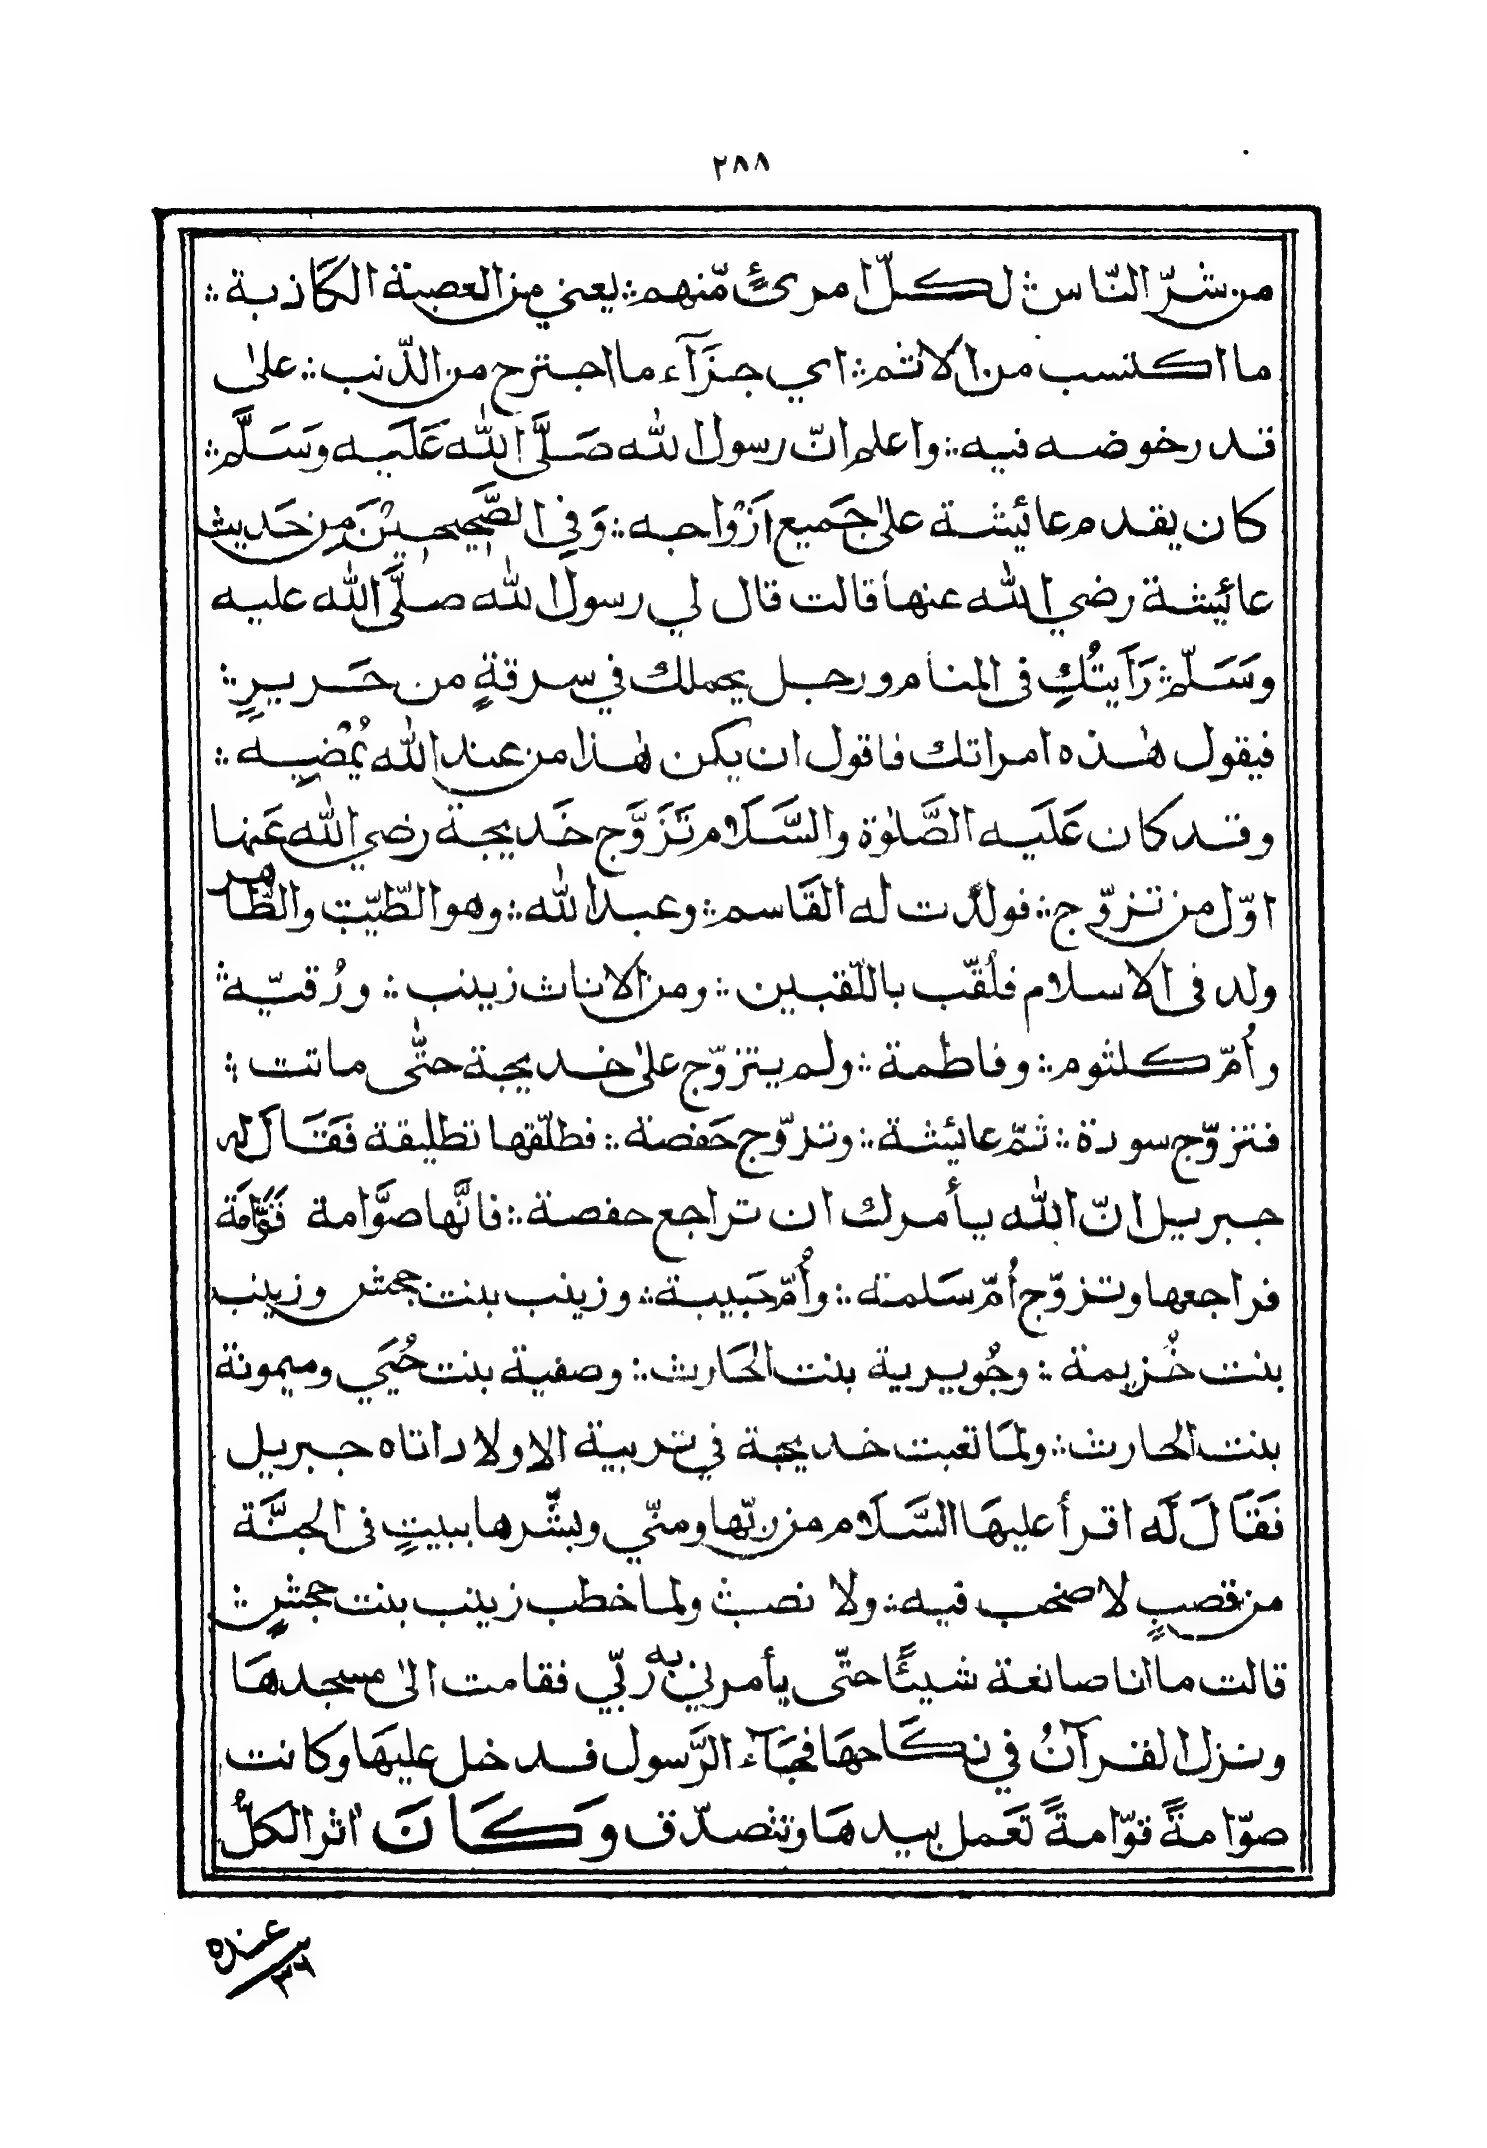 ٢٨٨
من شرّ النّاس ؞ لكلّ امرئٍ مّنهم ؞ يعني من العصبة الكَاذبة ؞
ما اكتسب من الاثم ؞ اي جزَآء ما اجترح من الذّنب ؞ علىٰ
قدر خوضه فيه ؞ واعلم انّ رسول الله صَلَّى الله عَلَيه وَسَلَّم ؞
كان يقدم عائيشة علىٰ جَميع اَزْواجه ؞ وَفِي الصَّحيحيْنَ من حَديث
عائيشة رضي الله عنها قالت قال لي رسول الله صلَّى الله عليه
وَسَلّم ؞ رَاَيتُكِ فى المنام ورجل يحملك في سرقةٍ من حَريرٍ ؞
فيقول هٰذه امراتك فاقول ان يكن هٰذا من عند الله يُمْضِيه ؞
وقد كان عَلَيه الصَّلوٰة والسَّلَام تَزَوَّج خَديجة رضي الله عَنها
اوّل من تزوّج ؞ فولدت له القَاسم ؞ وعبد الله ؞ وهو الطّيّب والطّاهر
ولد فى الاسلام فلُقّب باللّقبين ؞ ومن الاناث زينب ؞ ورُقيّة ؞
واُمّ كلثوم ؞ وفاطمة ؞ ولم يتزوّج علىٰ خديجة حتّٰى ماتت ؞
فتزوّج سودة ؞ ثمّ عائيشة ؞ وتزوّج حَفصة ؞ فطلّقها تطليقة فَقَالَ له
جبريل انّ الله يأمرك ان تراجع حفصة ؞ فانَّها صوَّامة قَوَّامَة
فراجعها وتزوّج اُمّ سَلمة ؞ واُمّ حَبيبة ؞ وزينب بنت جحش وزينب
بنت خُزيمة ؞ وجُويرية بنت الحَارث ؞ وصفية بنت حُيَي وميمونة
بنت الحارث ؞ ولمَا تعبت خديجة في تربية الاولاد اتاه جبريل
فَقَالَ لَه اقرأ عليهَا السَّلَام من ربّها ومنّي وبشّرها ببيتٍ فى الجنَّة
من قصبٍ لا صخب فيه ؞ ولا نصب ؞ ولما خطب زينب بنت جحشٍ ؞
قالت ما انا صانعة شيئًا حتّى يأمرني به ربّي فقامت الىٰ مسجدهَا
ونزل القرآنُ في نكَاحهَا فجَآء الرَّسول فدخل عليهَا وكانت
صوّامةً قوّامةً تعَمل بيدهَا وتتصدّق وَكَانَ اثر الكلُّ
عنده
٣٦